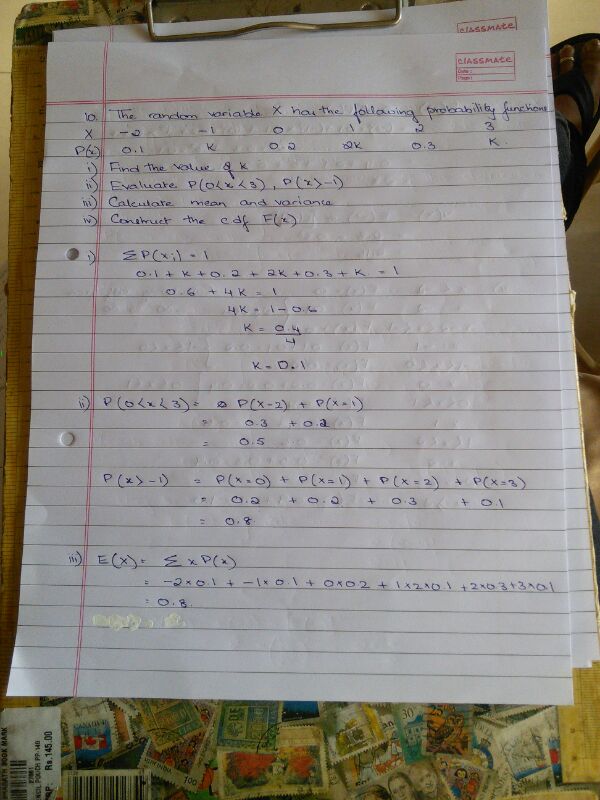 classmate
classmate
Date :
Page :
10. The random variable X has the following probability functions
X -2 -1 0 1 2 3
P(x) 0.1 K 0.2 2K 0.3 K.
i) Find the value of k
ii) Evaluate P(0<x<3), P(x>-1)
iii) Calculate mean and variance
iv) Construct the cdf F(x)
i) ΣP(xi) = 1
0.1 + K + 0.2 + 2K + 0.3 + K = 1
0.6 + 4K = 1
4K = 1 - 0.6
K = 0.4
4
K = 0.1
ii) P(0<x<3) = P(X=2) + P(X=1)
= 0.3 + 0.2
= 0.5
P(x>-1) = P(X=0) + P(X=1) + P(X=2) + P(X=3)
= 0.2 + 0.2 + 0.3 + 0.1
= 0.8
iii) E(X) = Σ x P(x)
= -2×0.1 + -1×0.1 + 0×0.2 + 1×2×0.1 + 2×0.3+3×0.1
= 0.8
BHARATH BOOK MARK
PENCIL POUCH PP-140
MRP Rs.145.00
CANADA
100
30